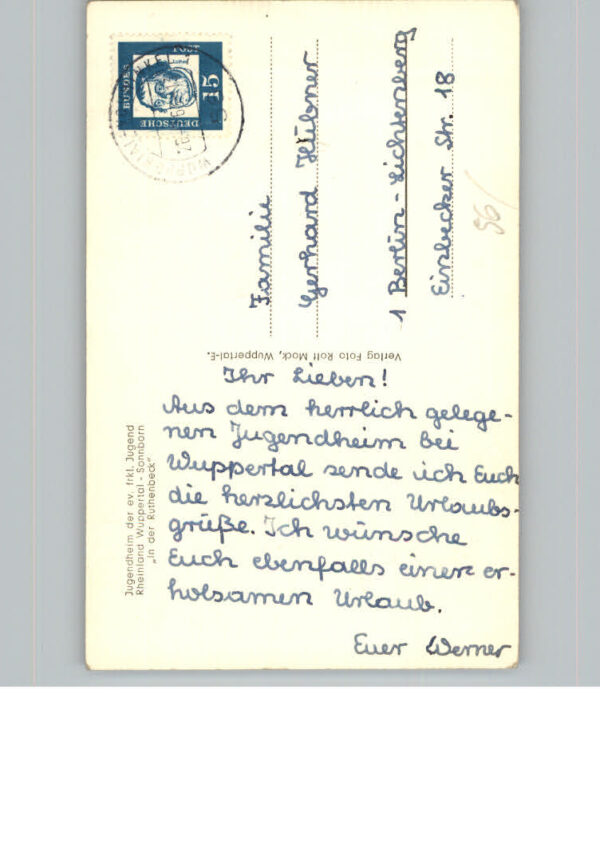 DEUTSCHE
BUNDES
POST
15
Familie
Gerhard Hübner
1 Berlin-Lichtenberg
Einbecker Str. 18
96/
Verlag Foto Rolf Mock, Wuppertal-E.
Jugendheim der ev. frkl. Jugend
Rheinland Wuppertal - Sonnborn
„In der Ruthenbeck"
Ihr Lieben!
Aus dem herrlich gelege-
nen Jugendheim bei
Wuppertal sende ich Euch
die herzlichsten Urlaubs-
grüße. Ich wünsche
Euch ebenfalls einen er-
holsamen Urlaub.
Euer Werner